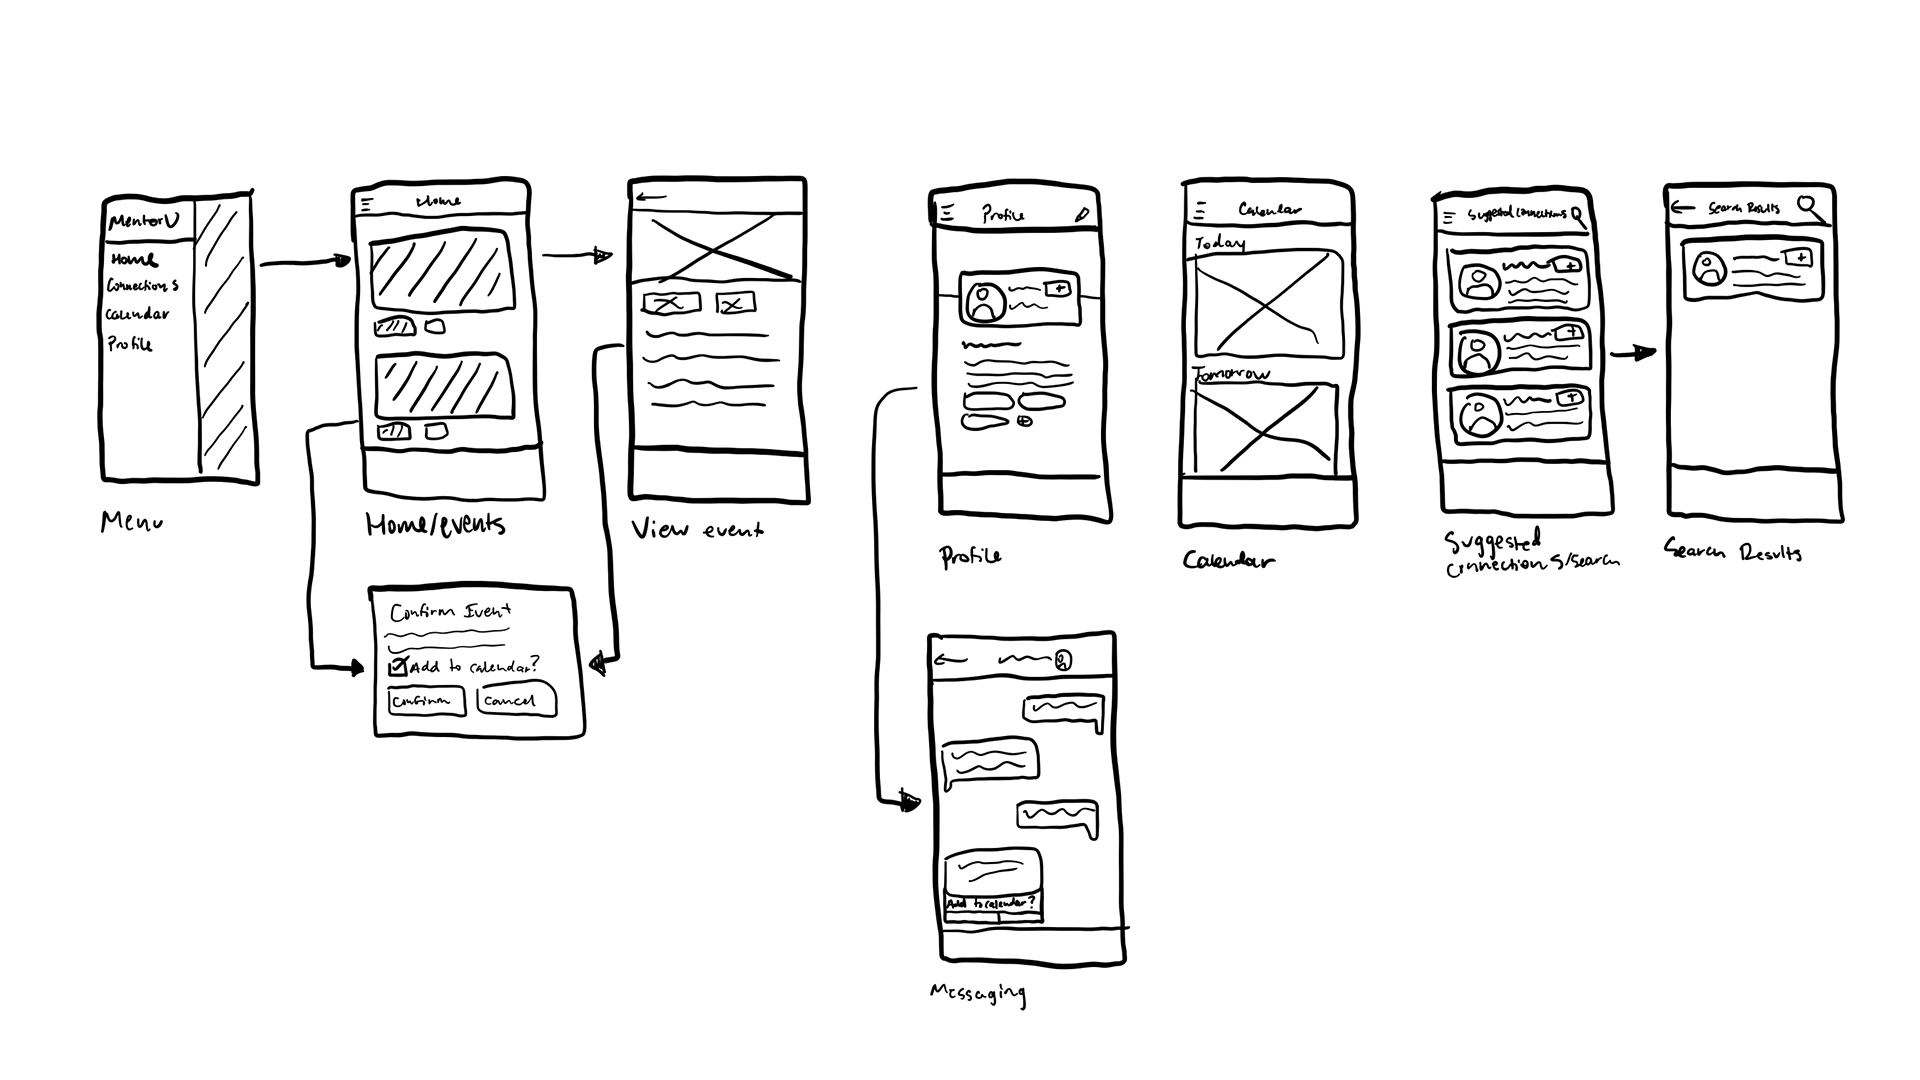 MentorU
Home
Connections
Calendar
Profile
Menu
Home
Home/events
View event
Confirm Event
Add to calendar?
Confirm
Cancel
Profile
Profile
Add to calendar?
Messaging
Calendar
Today
Tomorrow
Calendar
Suggested Connections
Suggested
Connections/Search
Search Results
Search Results